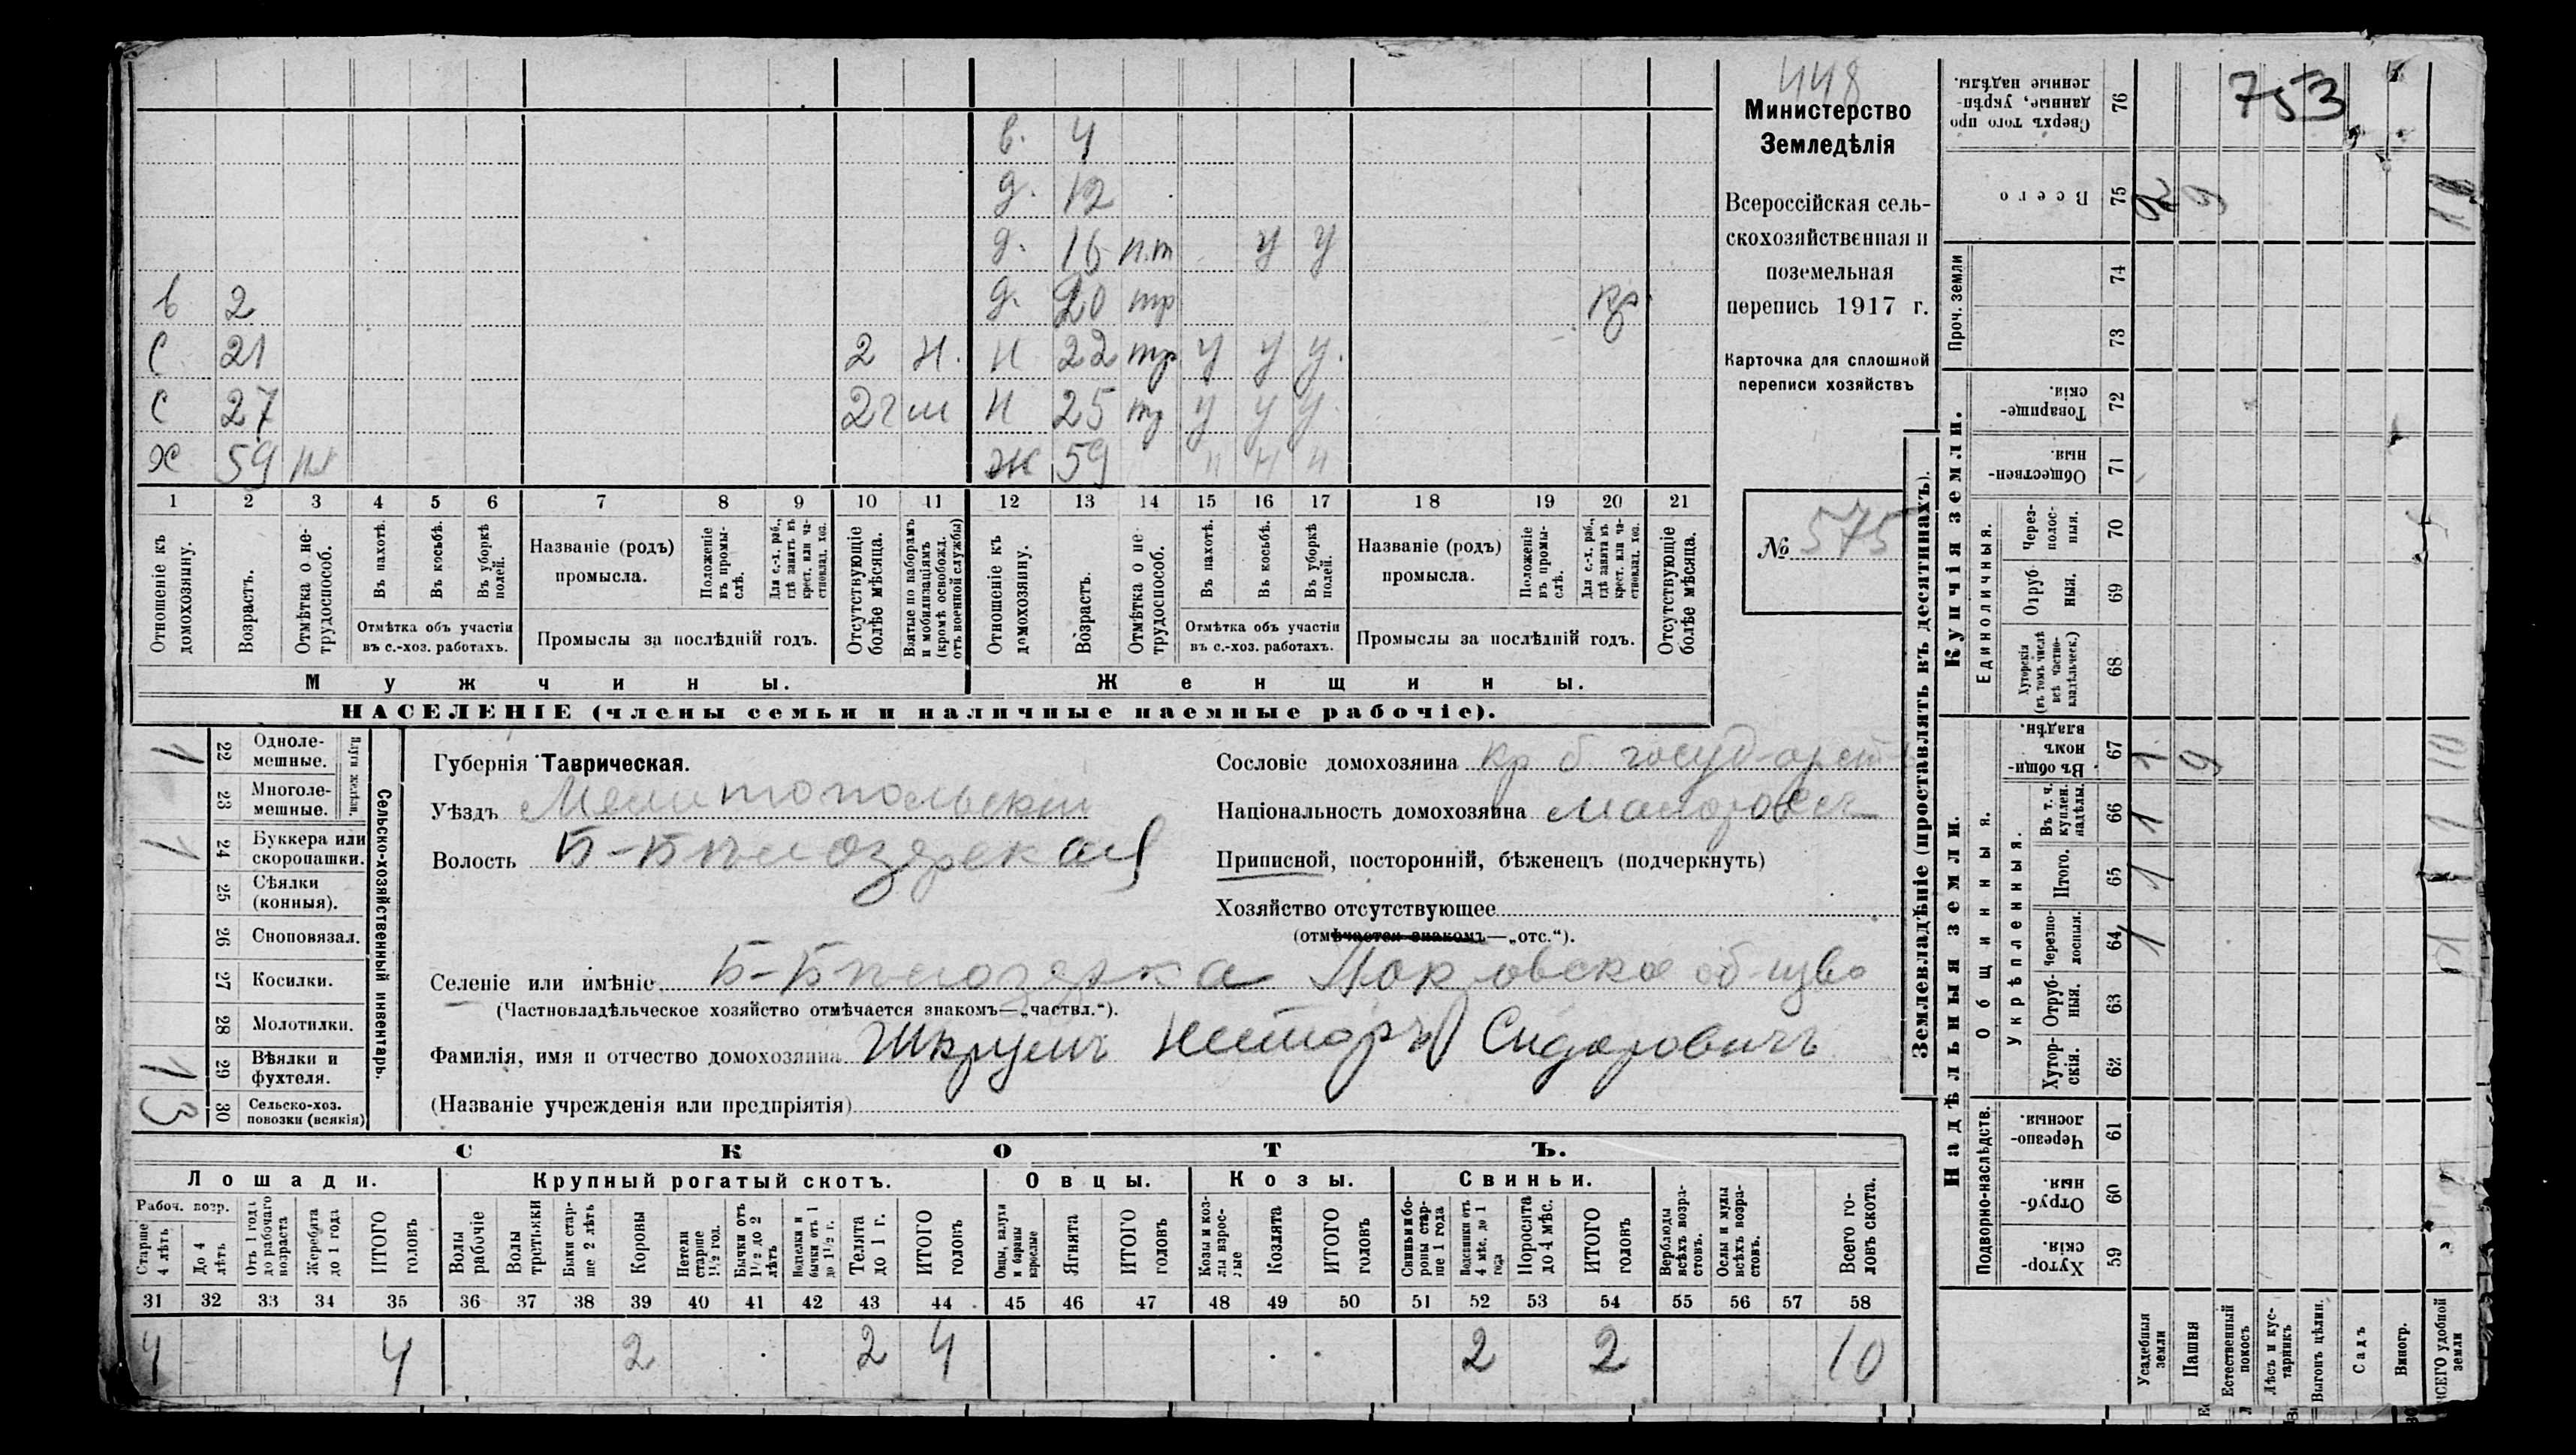 448
Министерство
Земледѣлія
Всероссійская сель-
скохозяйственная и
поземельная
перепись 1917 г.
Карточка для сплошной
переписи хозяйствъ
№ 575
753
в. 4
д. 12
д. 16 п.т у у
в 2 д. 20 тр кр
С 21 2 н. н 22 тр у у у.
С 27 2г н 25 тр у у у.
Х 59 ж 59 н н н
1 2 3 4 5 6 7 8 9 10 11 12 13 14 15 16 17 18 19 20 21
Отношеніе къ домохозяину.
Возрастъ.
Отмѣтка о не-трудоспособ.
Въ пахотѣ.
Въ косьбѣ.
Въ уборкѣ полей.
Отмѣтка объ участіи
въ с.-хоз. работахъ.
Названіе (родъ)
промысла.
Положеніе въ промы-слѣ.
Для с.-х. раб., гдѣ занятъ въ крест. или ча-стновлад. хоз.
Промыслы за послѣдній годъ.
Отсутствующіе болѣе мѣсяца.
Взятые по наборамъ и мобилизаціямъ (кромѣ освобожд. отъ военной службы)
Отношеніе къ домохозяину.
Возрастъ.
Отмѣтка о не-трудоспособ.
Въ пахотѣ.
Въ косьбѣ.
Въ уборкѣ полей.
Отмѣтка объ участіи
въ с.-хоз. работахъ.
Названіе (родъ)
промысла.
Положеніе въ промы-слѣ.
Для с.-х. раб., гдѣ занята въ крест. или ча-стновлад. хоз.
Промыслы за послѣдній годъ.
Отсутствующіе болѣе мѣсяца.
Мужчины. Женщины.
НАСЕЛЕНІЕ (члены семьи и наличные наемные рабочіе).
Сельско-хозяйственный инвентарь.
1 22 Одноле-мешные.
23 Многоле-мешные.
1 24 Буккера или скоропашки.
25 Сѣялки (конныя).
26 Сноповязал.
27 Косилки.
28 Молотилки.
1 29 Вѣялки и фухтеля.
3 30 Сельско-хоз. повозки (всякія)
Губернія Таврическая.
Уѣздъ Мелитопольскій
Волость Б-Бѣлозерская
Сословіе домохозяина кр б государст
Національность домохозяина малороссъ
Приписной, посторонній, бѣженецъ (подчеркнуть)
Хозяйство отсутствующее
(отмѣчается знакомъ—„отс.“).
Селеніе или имѣніе Б-Бѣлозерка Покровское об-щво
(Частновладѣльческое хозяйство отмѣчается знакомъ—„частвл.“).
Фамилія, имя и отчество домохозяина Несторъ Сидоровичъ
(Названіе учрежденія или предпріятія)
СКОТЪ.
Лошади. Крупный рогатый скотъ. Овцы. Козы. Свиньи.
Рабоч. возр.
Старше 4 лѣтъ
До 4 лѣтъ
Отъ 1 года до рабочаго возраста
Жеребята до 1 года
ИТОГО головъ
Волы рабочіе
Волы третьяки
Быки стар-ше 2 лѣтъ
Коровы
Нетели старше 1½ год.
Бычки отъ 1½ до 2 лѣтъ
Подтелки и бычки отъ 1 до 1½ г.
Телята до 1 г.
ИТОГО головъ
Овцы, валухи и бараны взрослые
Ягнята
ИТОГО головъ
Козы и коз-лы взрос-лые
Козлята
ИТОГО головъ
Свиньи и бо-ровы стар-ше 1 года
Подсвинки отъ 4 мѣс. до 1 года
Поросята до 4 мѣс.
ИТОГО головъ
Верблюды всѣхъ возра-стовъ.
Ослы и мулы всѣхъ возра-стовъ.
Всего го-ловъ скота.
31 32 33 34 35 36 37 38 39 40 41 42 43 44 45 46 47 48 49 50 51 52 53 54 55 56 57 58
4 4 2 2 4 2 2 10
Землевладѣніе (проставлять въ десятинахъ).
Надѣльныя земли.
Купчія земли.
Проч. земли
Подворно-наслѣдств.
Общинныя.
Укрѣпленныя.
Единоличныя.
Сверхъ того про данные, укрѣп-ленные надѣлы. 76
Всего 75 9
74
73
Товарище-скія. 72
Обществен-ныя. 71
Через-полос-ныя. 70
Отруб-ныя. 69
Хуторскія (въ томъ числѣ всѣ частно-владѣльческ.) 68
Въ общи-номъ владѣн. 67 1 9 10
Въ т. ч. куплен. надѣлы. 66 1
Итого. 65 1
Черезпо-лосныя. 64 1
Отруб-ныя. 63
Хутор-скія. 62
Черезпо-лосныя. 61
Отруб-ныя. 60
Хутор-скія. 59
Усадебныя земли
Пашня
Естественный покосъ
Лѣсъ и кус-тарникъ
Выгонъ цѣлин.
Садъ
Виногр.
ВСЕГО удобной земли